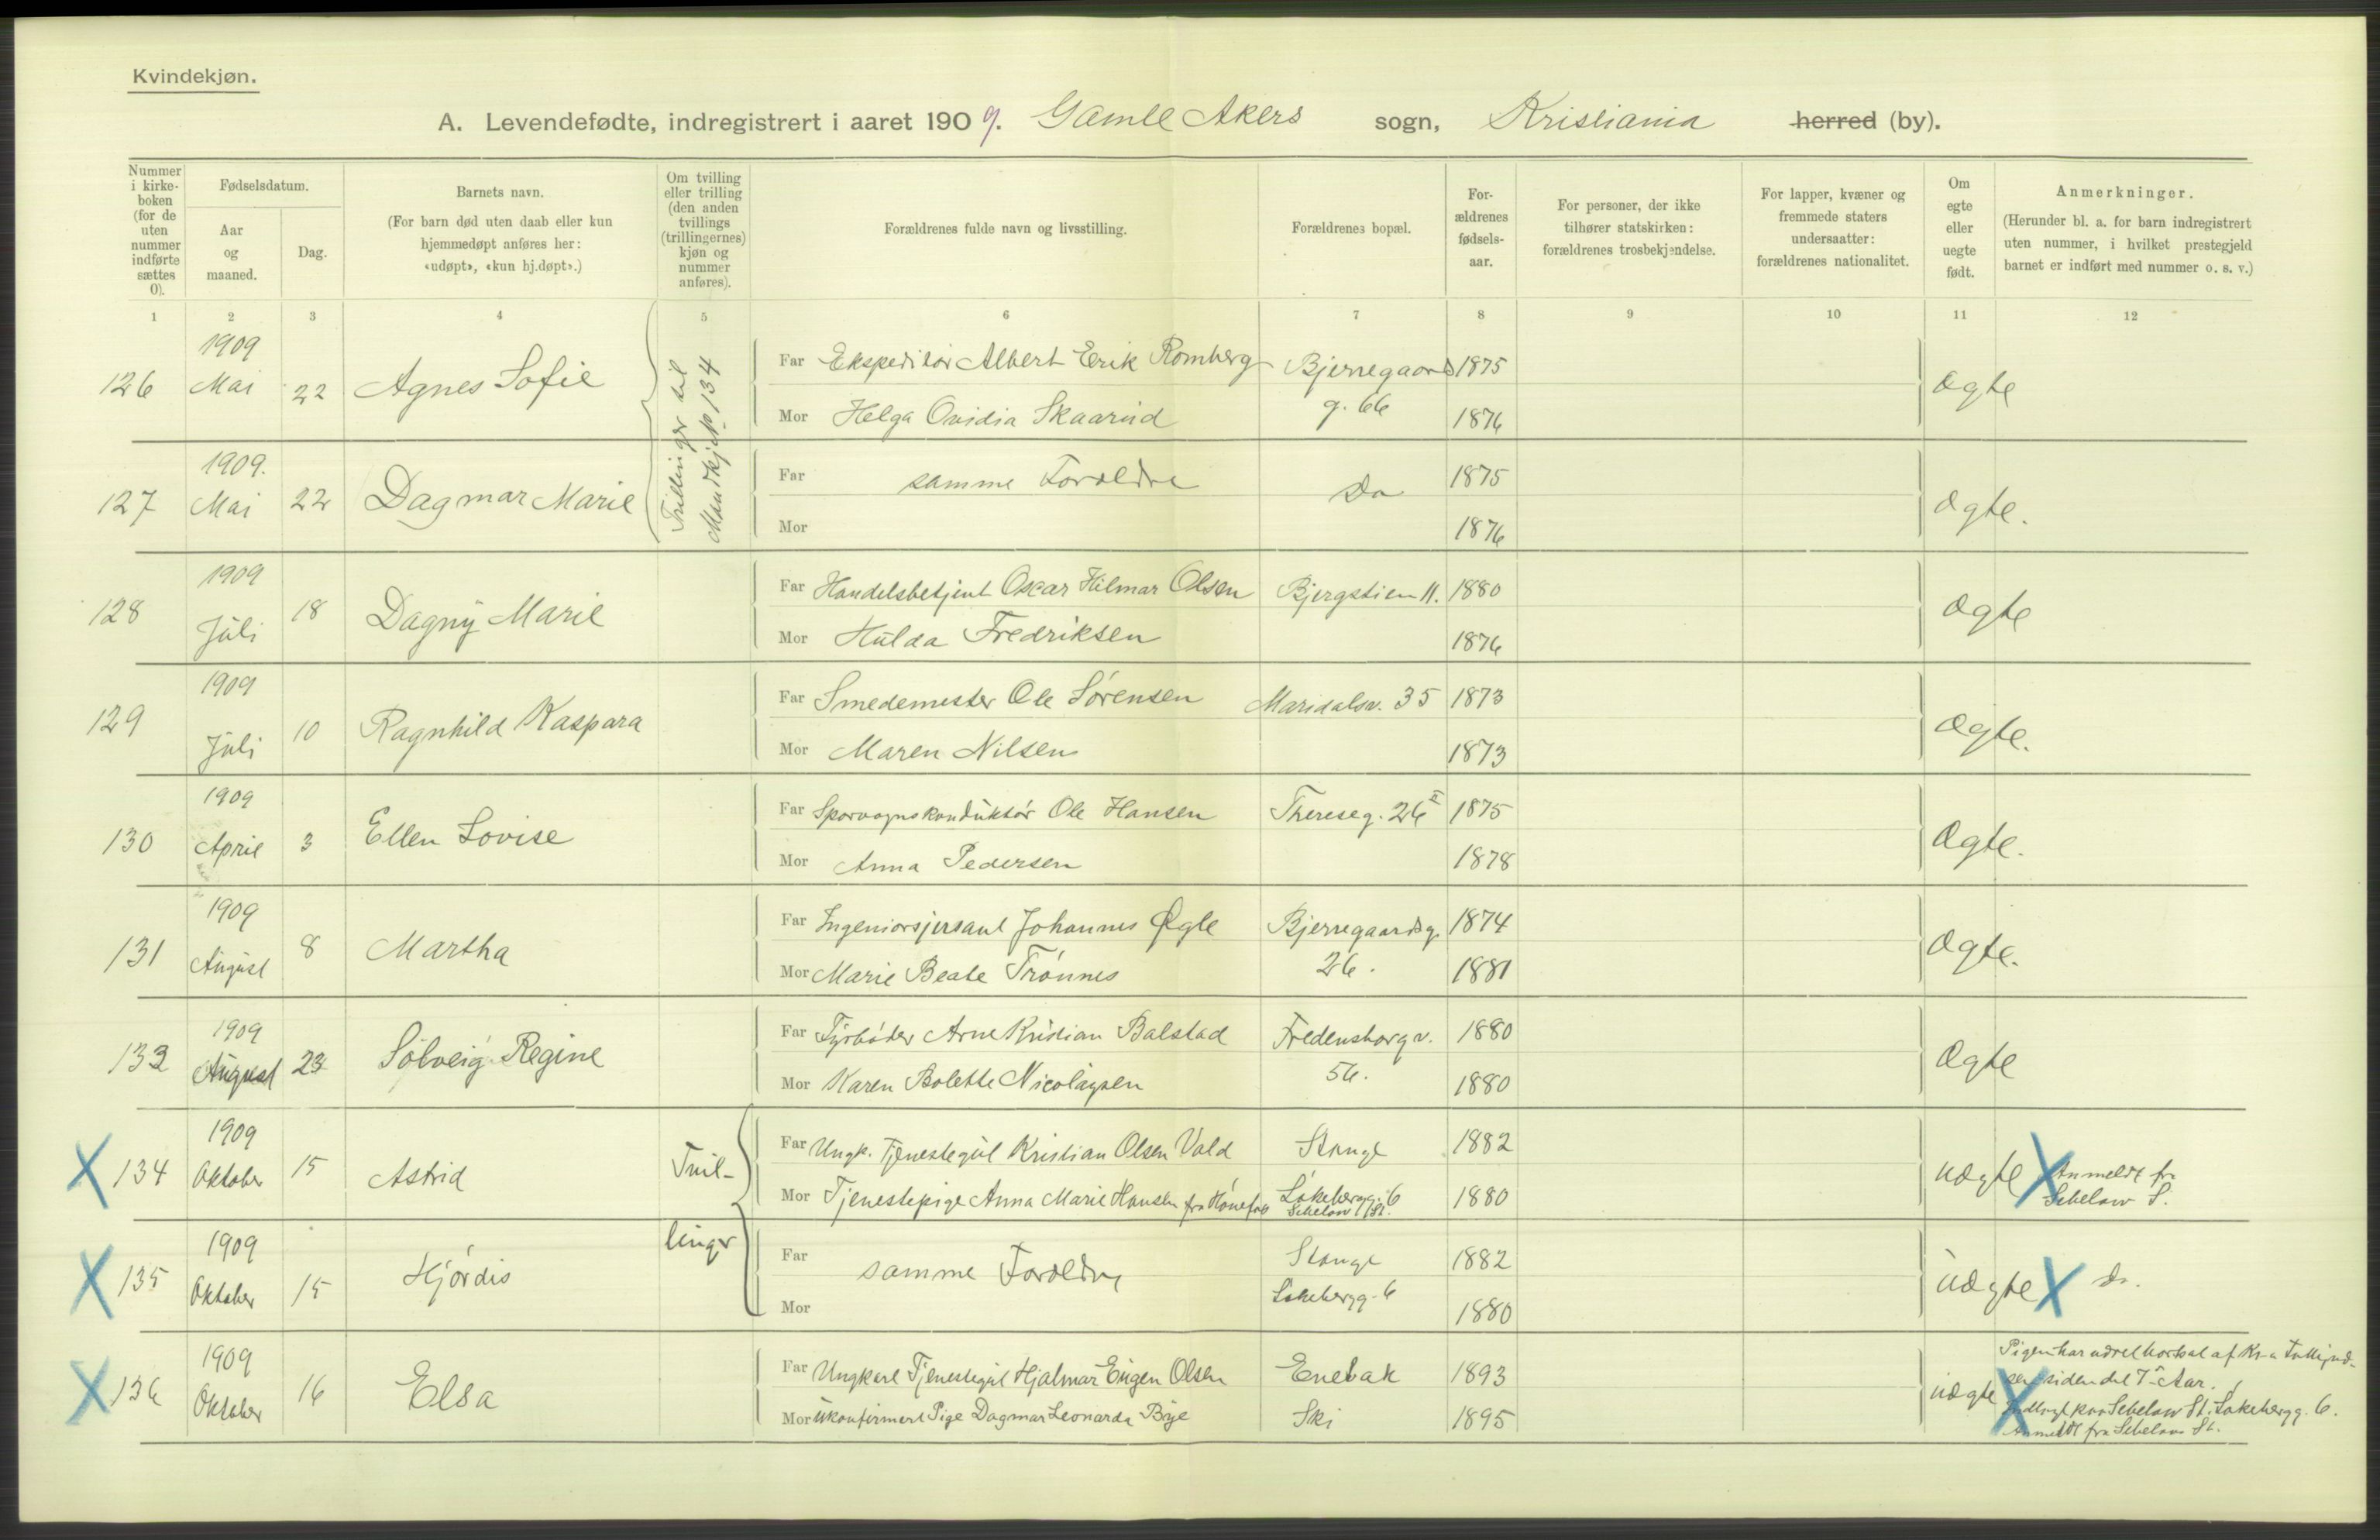 Kvindekjøn.
A. Levendefødte, indregistrert i aaret 1909. Gamle Akers sogn, Kristiania herred (by).
Nummer i kirkeboken (for de uten nummer indførte sættes 0).
Fødselsdatum.
Aar og maaned.
Dag.
Barnets navn.
(For barn død uten daab eller kun hjemmedøpt anføres her: «udøpt», «kun hj.døpt».)
Om tvilling eller trilling (den anden tvillings (trillingernes) kjøn og nummer anføres).
Forældrenes fulde navn og livsstilling.
Forældrenes bopæl.
Forældrenes fødselsaar.
For personer, der ikke tilhører statskirken: forældrenes trosbekjendelse.
For lapper, kvæner og fremmede staters undersaatter: forældrenes nationalitet.
Om egte eller uegte født.
Anmerkninger.
(Herunder bl. a. for barn indregistrert uten nummer, i hvilket prestegjeld barnet er indført med nummer o. s. v.)
1 2 3 4 5 6 7 8 9 10 11 12
126 1909 Mai 22 Agnes Sofie
Trillinger til Mandkj. No 134
Far Ekspeditør Albert Erik Romberg Bjerregaards 1875 ægte
Mor Helga Ovidia Skaarud g. 66 1876
127 1909. Mai 22 Dagmar Marie
Far samme Forældre Do 1875 ægte.
Mor 1876
128 1909 Juli 18 Dagny Marie
Far Handelsbetjent Oscar Hilmar Olsen Bjergstien 11. 1880 ægte
Mor Hulda Fredriksen 1876
129 1909 Juli 10 Ragnhild Kaspara
Far Smedemester Ole Sørensen Maridalsv. 35 1873 ægte.
Mor Maren Nilsen 1873
130 1909 April 3 Ellen Lovise
Far Sporvognskonduktør Ole Hansen Thereseg. 26 II 1875 ægte.
Mor Anna Pedersen 1878
131 1909 August 8 Martha
Far Ingeniørsjersant Johannes Øgle Bjerregaardsg. 1874 ægte.
Mor Marie Beate Trønnes 26. 1881
133 1909 August 23 Sólveig Regine
Far Fyrbøder Arne Kristian Balstad Fredensborgv. 1880 ægte
Mor Karen Bolette Nicolaysen 56. 1880
X 134 1909 Oktober 15 Astrid Tvil-
Far Ungk. Tjenestegut Kristian Olsen Vold Stange 1882 uægte X Anmeldt fra
Mor Tjenestepige Anna Marie Hansen fra Hønefos Lakkebergg. 6 Schelow St. 1880 Schelow S.
X 135 1909 Oktober 15 Hjørdis linger
Far samme Forældre Stange 1882 uægte X do.
Mor Lakkebergg. 6 1880
X 136 1909 Oktober 16 Elsa
Far Ungkarl Tjenestegut Hjalmar Eugen Olsen Enebak 1893 uægte X
Mor ukonfirmert Pige Dagmar Leonarda Bye Ski 1895
Pigen har været bortsat af Kr.a
siden det 7de Aar.
Indlagt paa Schelow St. Lakkebergg. 6.
Anmeldt fra Schelow St.